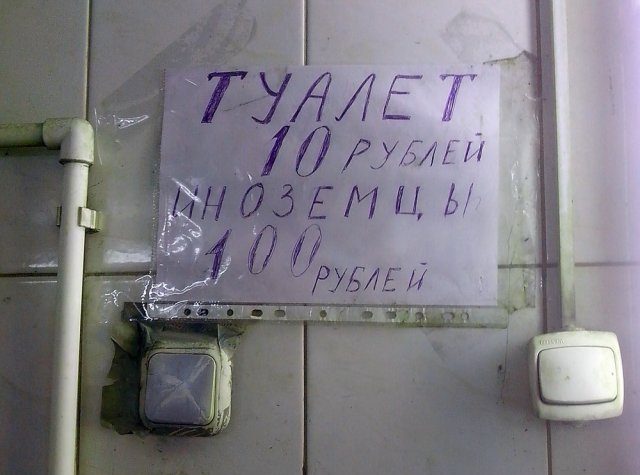 ТУАЛЕТ
10 РУБЛЕЙ
ИНОЗЕМЦЫ
100
РУБЛЕЙ